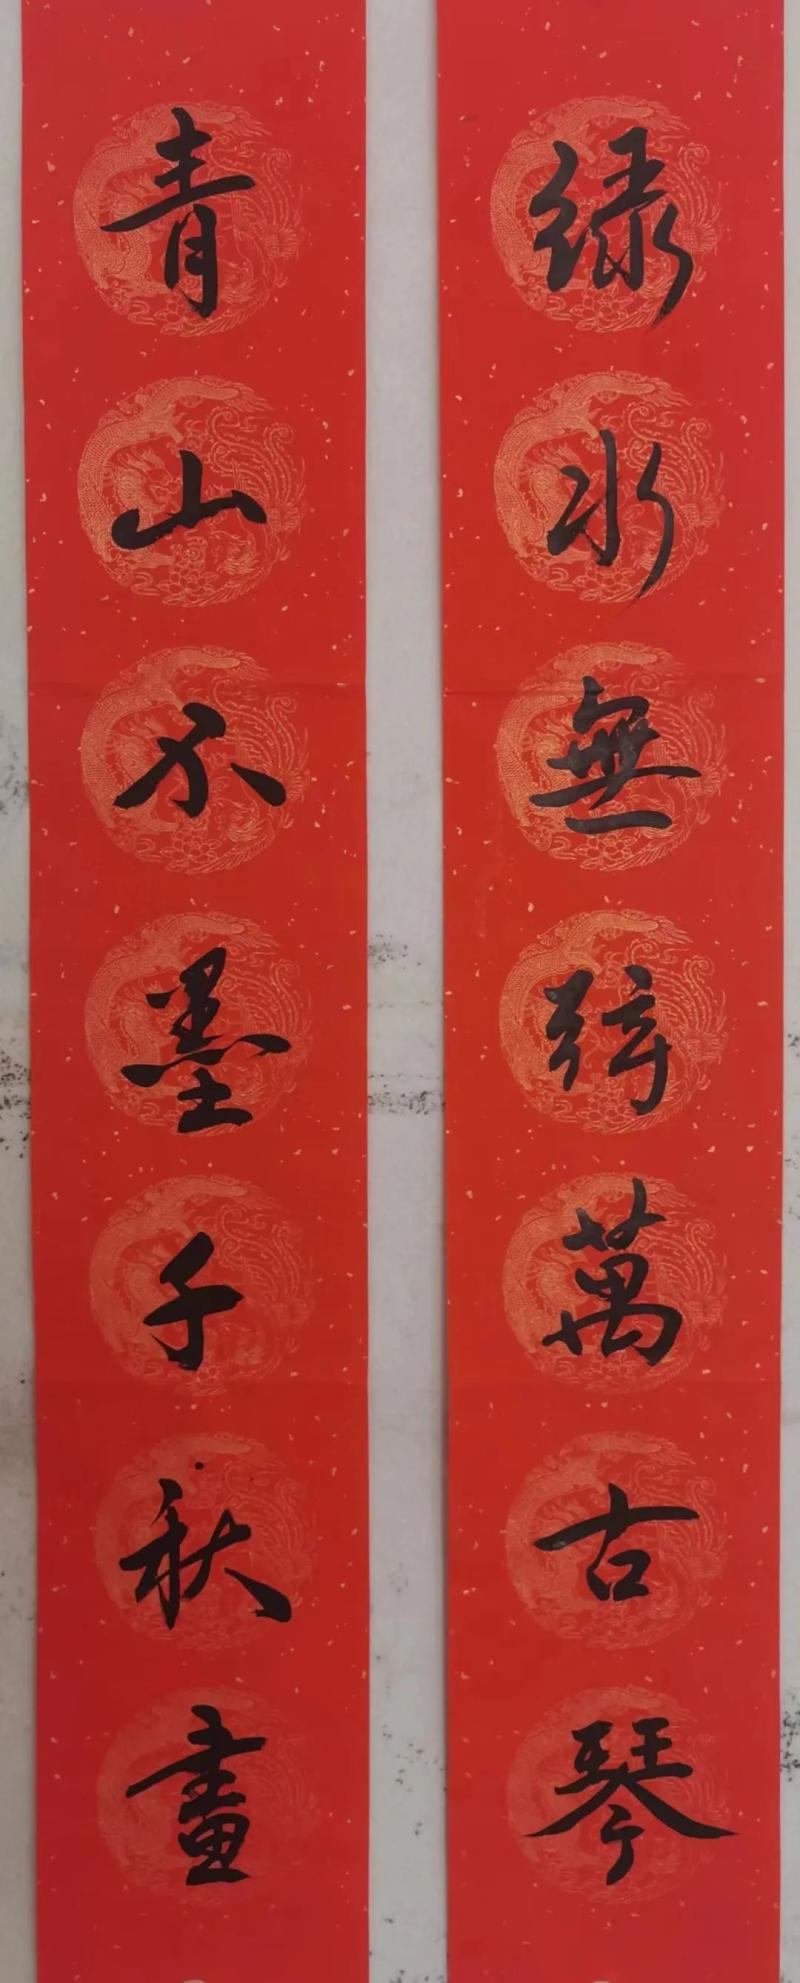 绿水無弦萬古琴
青山不墨千秋畫